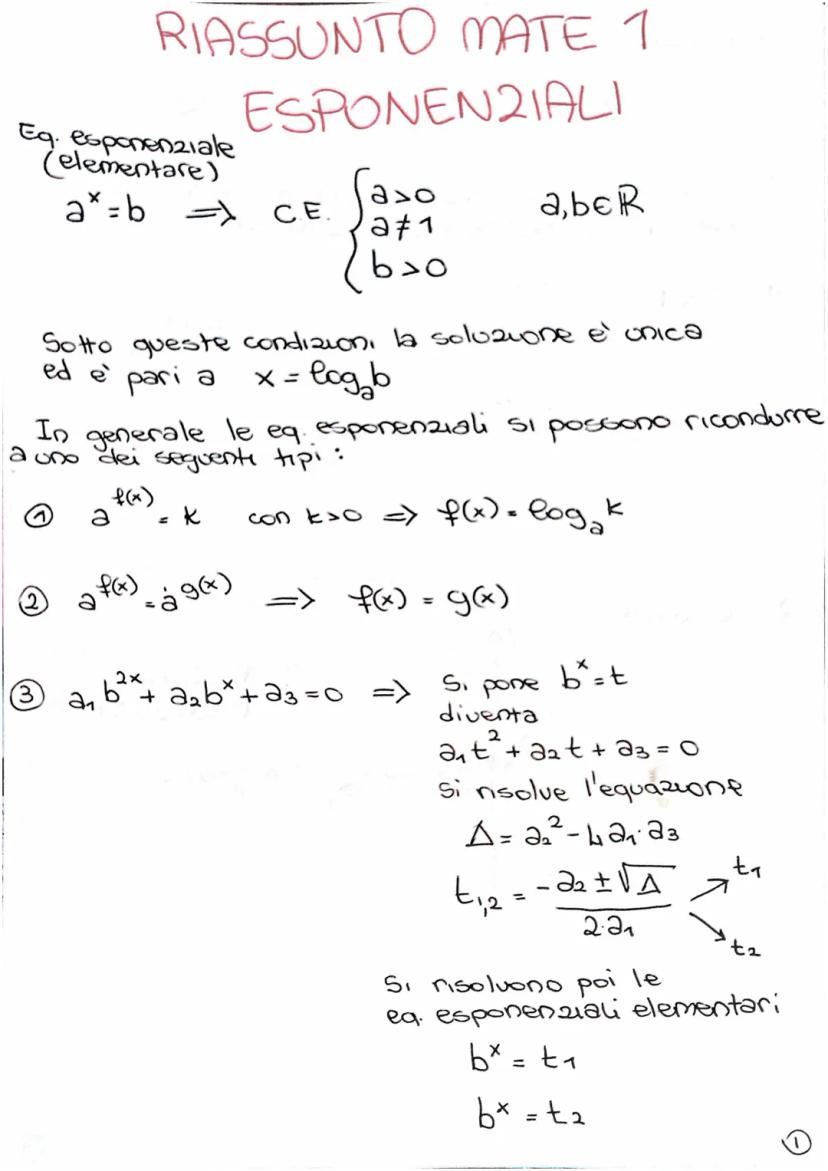 RIASSUNTO MATE 1
ESPONENZIALI
Eq. esponenziale
(elementare)
aˣ = b ⇒ C.E. { a>0 a≠1 b>0 a,b∈ℝ
Sotto queste condizioni la soluzione è unica
ed è pari a x = logₐb
In generale le eq. esponenziali si possono ricondurre
a uno dei seguenti tipi:
① a^f(x) = k con k>0 ⇒ f(x) = logₐk
② a^f(x) = a^g(x) ⇒ f(x) = g(x)
③ a₁b^2x + a₂bˣ + a₃ = 0 ⇒ Si pone bˣ = t
diventa
a₁t² + a₂t + a₃ = 0
si risolve l'equazione
Δ = a₂² - 4a₁·a₃
t₁,₂ = (-a₂ ± √Δ) / (2·a₁) ↗ t₁ ↘ t₂
Si risolvono poi le
eq. esponenziali elementari
bˣ = t₁
bˣ = t₂
①